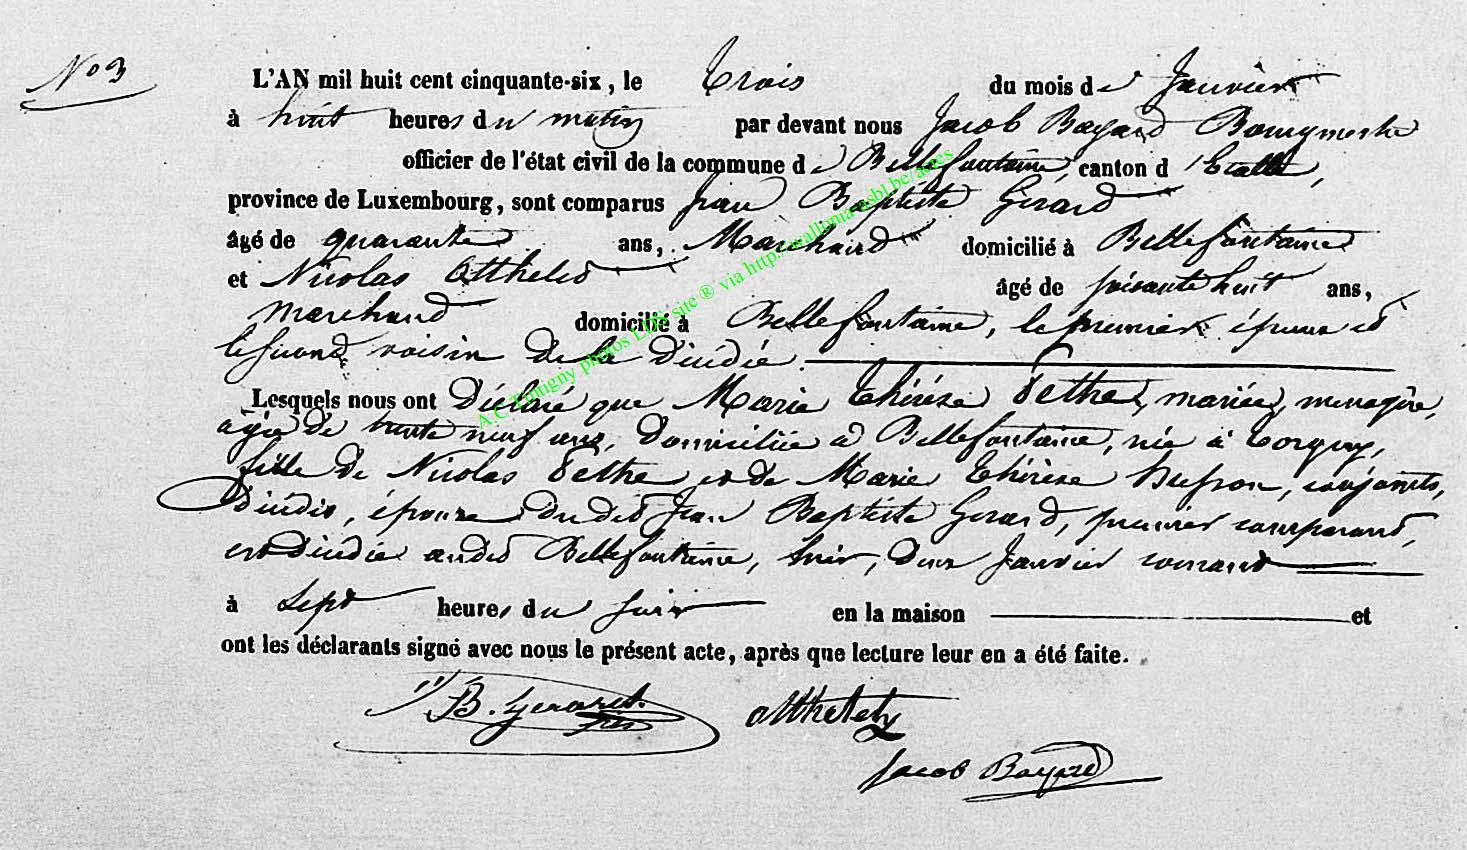 N° 3
L'AN mil huit cent cinquante-six, le Trois du mois de Janvier
à huit heures du matin par devant nous Jacob Bayard Bourgmestre
officier de l'état civil de la commune de Bellefontaine, canton d'Etalle,
province de Luxembourg, sont comparus Jean Baptiste Gerard
âgé de quarante ans, Marchand domicilié à Bellefontaine
et Nicolas Otthelet âgé de soixante huit ans,
marchand domicilié à Bellefontaine, le premier époux et
le second voisin de la Décédée.
Lesquels nous ont Déclaré que Marie Thérèse Dethre, mariée, menagère,
agée de trente neuf ans, Domiciliée à Bellefontaine, née à Torgny,
fille de Nicolas Dethre et de Marie Thérèse conjoints,
Décédés, épouse du dit Jean Baptiste Gerard, premier comparant,
est décédée audit Bellefontaine, hier, deux Janvier courant
à Sept heures du soir en la maison et
ont les déclarants signé avec nous le présent acte, après que lecture leur en a été faite.
JB. Gerard
Otthelet
Jacob Bayard
A.C Tintigny photos LDS site ® via http://wallonia-asbl.be/actes